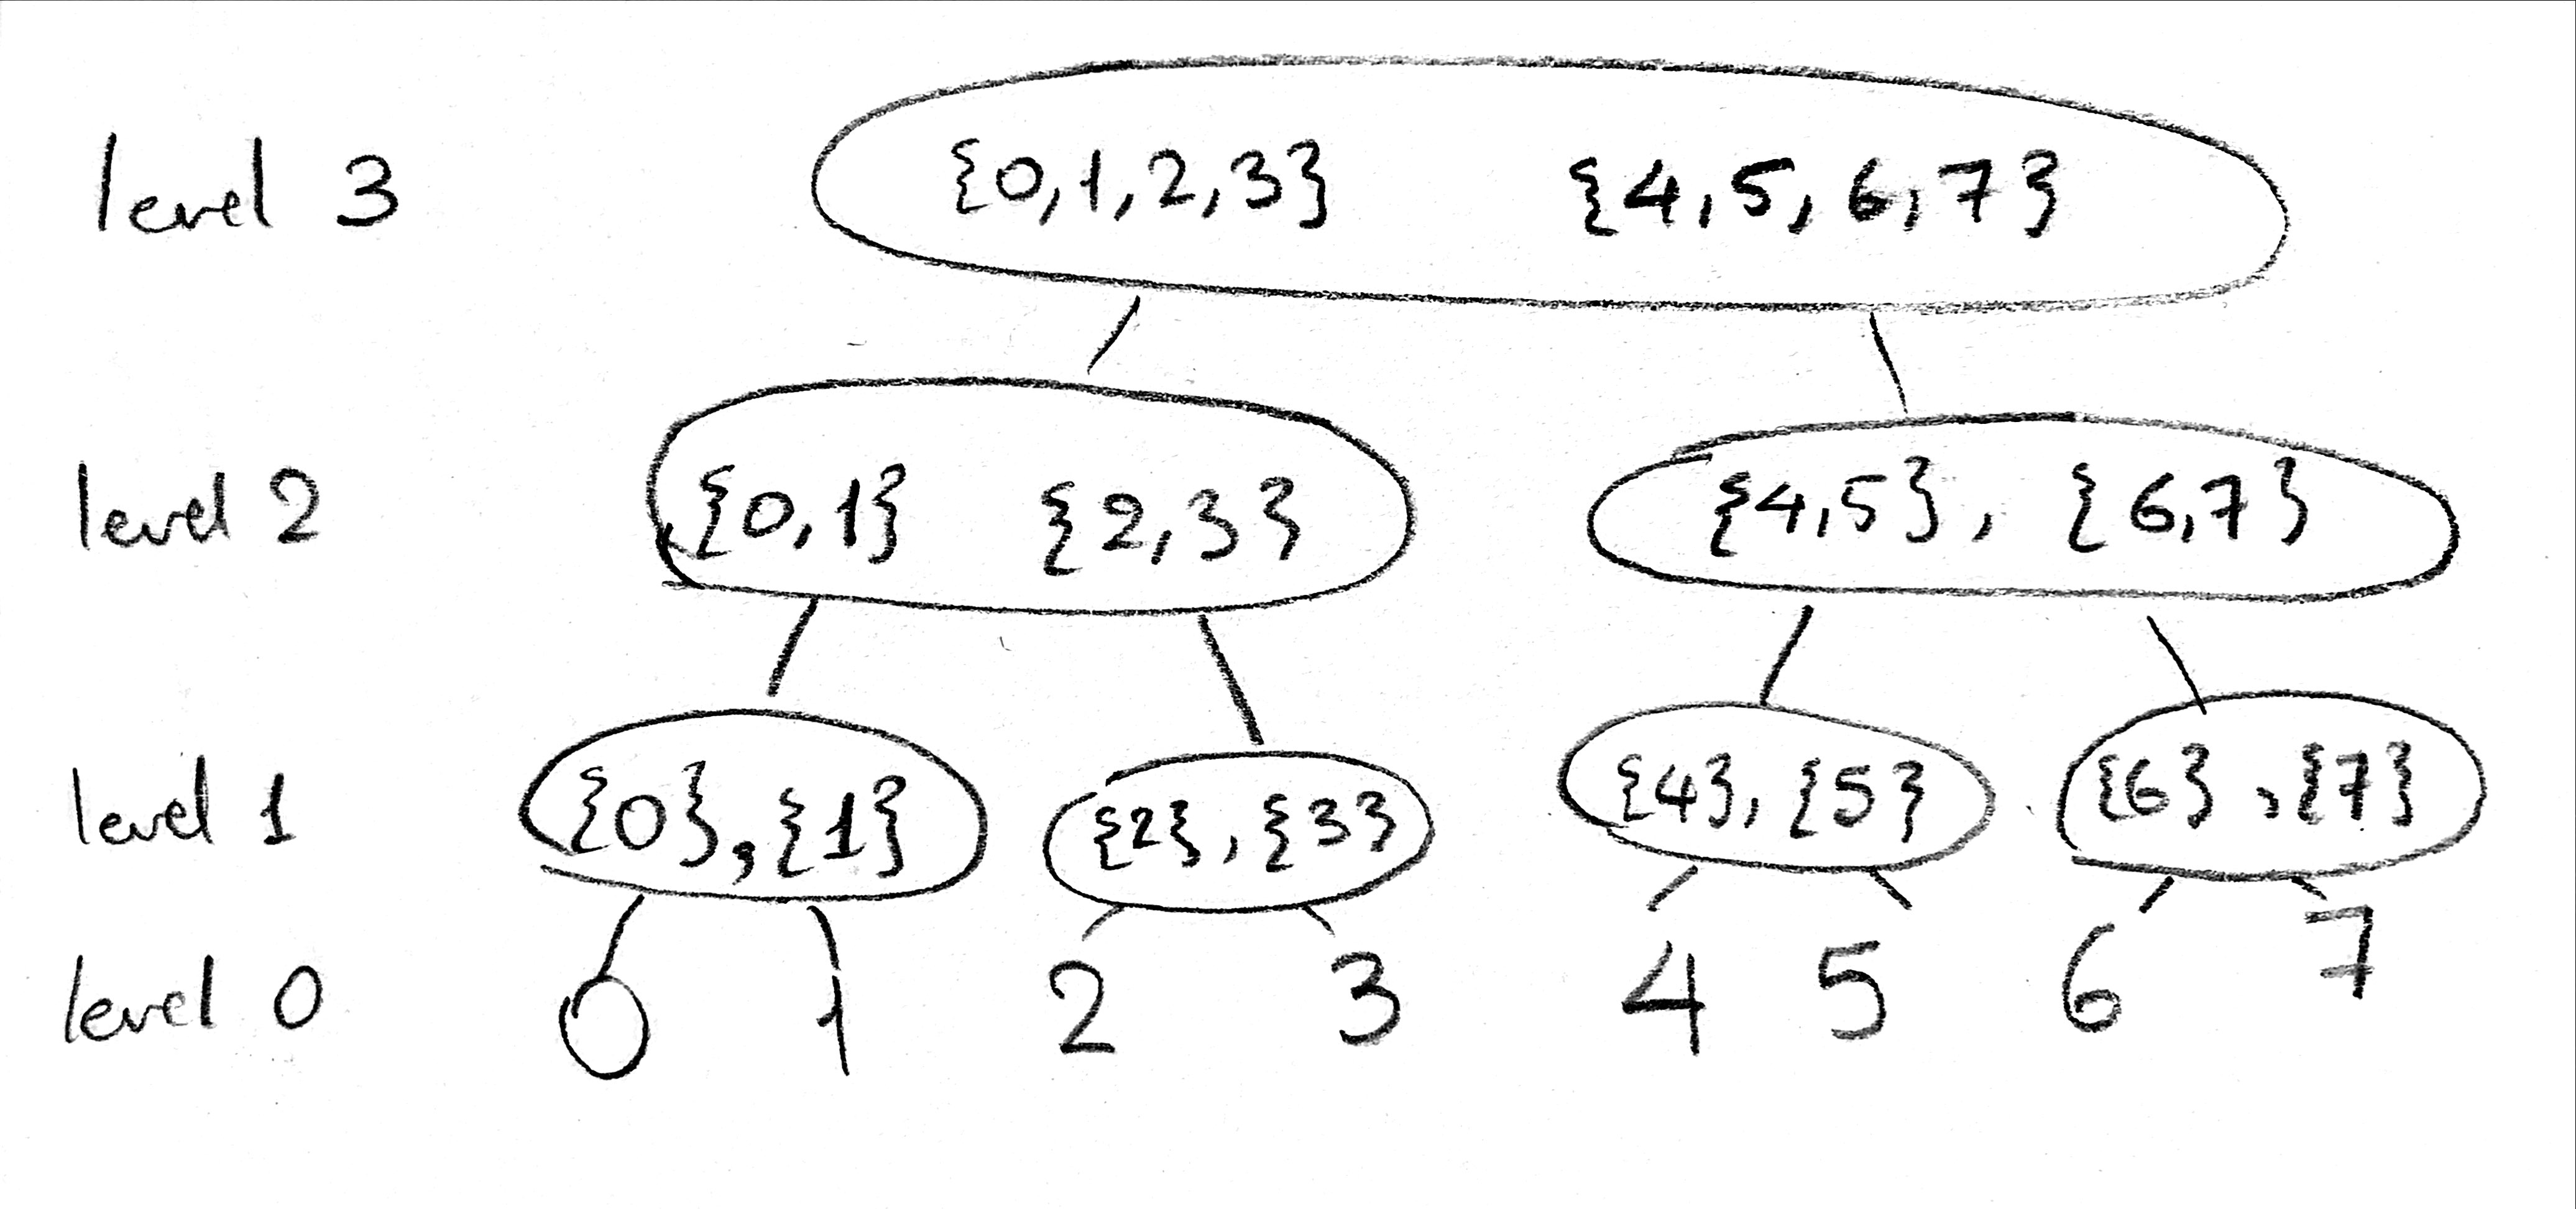 level 3 {0,1,2,3} {4,5,6,7}
level 2 {0,1} {2,3} {4,5}, {6,7}
level 1 {0},{1} {2},{3} {4},{5} {6},{7}
level 0 0 1 2 3 4 5 6 7